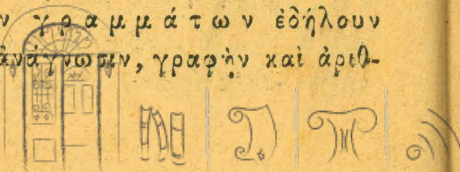 ν γραμμάτων ἐδήλουν
ἀνάγνωσιν, γραφὴν καὶ ἀριθ-